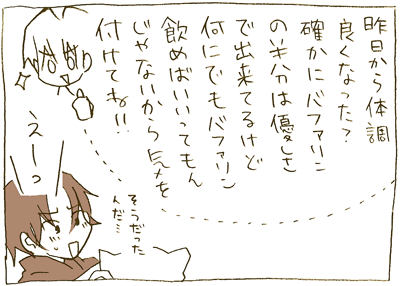 昨日から体調
良くなった?
確かにバファリン
の半分は優しさ
で出来てるけど
何にでもバファリン
飲めばいいってもん
じゃないから気を
付けてね!!
えーっ
そうだった
んだ…